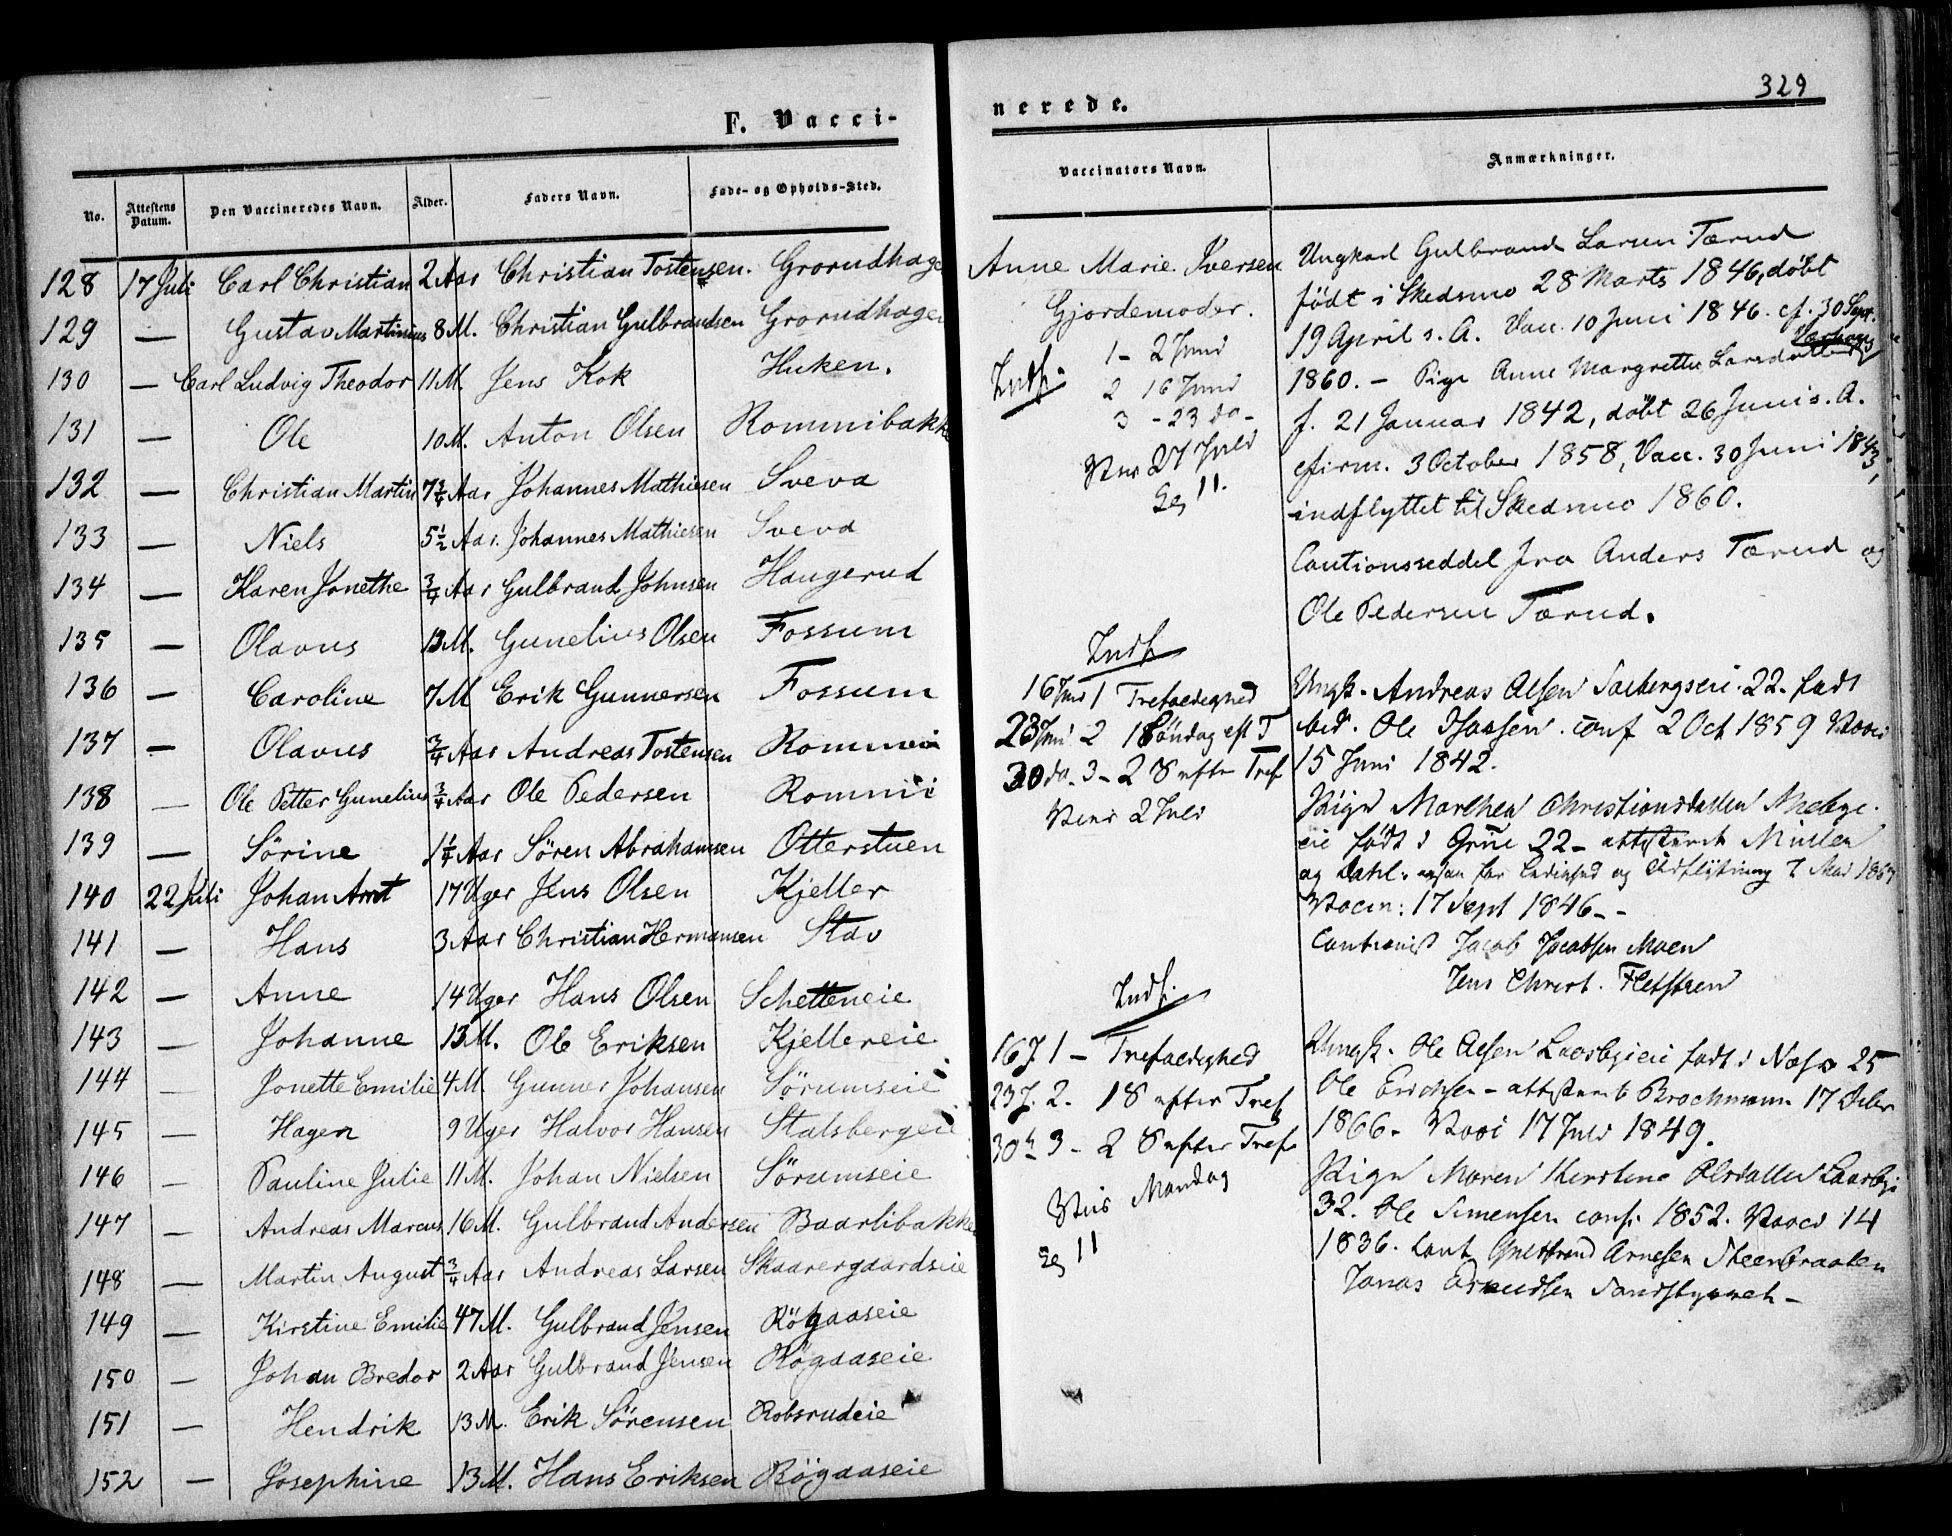 329
F. Vacci-
nerede.
No.
Attestens Datum.
Den Vaccineredes Navn.
Alder.
Faders Navn.
Føde- og Opholds-Sted.
Vaccinators Navn.
Anmærkninger.
128 17 Juli Carl Christian 2 Aar Christian Tostensen. Grorudhage
129 — Gustav Martinius 8 M. Christian Gulbrandsen Grorudhagen
130 — Carl Ludvig Theodor 11 M Jens Kok Huken.
131 — Ole 10 M. Anton Olsen Rommibakke
132 — Christian Martin 7 3/4 Aar Johannes Mathiesen Sveva
133 — Niels 5 1/2 Aar. Johannes Mathiesen Sveva
134 — Karen Jonethe 3/4 Aar Gulbrand Johnsen Haugerud
135 — Olavus 13 M. Gunelius Olsen Fossum
136 — Caroline 7 M Erik Gunnersen Fossum
137 — Olavus 3/4 Aar Andreas Tostensen Rommi
138 — Ole Petter Gunelius 3/4 Aar Ole Pedersen Rommi
139 — Sørine 1 1/4 Aar Søren Abrahamsen Otterstuen
140 22 Juli Johan Arnt 17 Uger Jens Olsen Kjeller
141 — Hans 3 Aar Christian Hermansen Stav
142 — Anne 14 Uger Hans Olsen Schetteneie
143 — Johanne 13 M. Ole Eriksen Kjellereie
144 — Jonette Emilie 4 M Gunner Johansen Sørumseie
145 — Hagen 9 Uger Halvor Hansen Stalsbergeie
146 — Pauline Julie 11 M. Johan Nielsen Sørumseie
147 — Andreas Marcus 16 M. Gulbrand Andersen Baarlibakke
148 — Martin August 3/4 Aar Andreas Larsen Skaarergaardseie
149 — Kirstine Emilie 47 M. Gulbrand Jensen Røgaaseie
150 — Johan Bredor 2 Aar Gulbrand Jensen Røgaaseie
151 — Hendrik 13 M. Erik Sørensen Robsrudeie
152 — Josephine 13 M. Hans Eriksen Røgaaseie
Anne Marie Iversen
Gjordemoder.
Indf.
1 - 2 Juni
2 16 Juni
3 - 23 do -
27 Juli
11.
Indf.
16 Juni 1 Trefoldighed
23 Juni 2 1 S öndag eft T
30 do. 3 - 2 S efter Tref
2 Juli
Indf.
16 J 1 - Trefoldighed
23 J. 2. 1 S efter Tref
30 3 - 2 S efter Tref
Mandag
11
Ungkarl Gulbrand Larsen Tærud
født i Skedsmo 28 Marts 1846, døbt
19 April s. A. Vacc. 10 Juni 1846. cf. 30 Sept.
1860. - Pige Anne Margrethe Larsdatter
f. 21 Januar 1842, døbt 26 Juni s. A.
cfirm. 3 October 1858, Vacc. 30 Juni 1843,
indflyttet til Skedsmo 1860.
Cautionsseddel fra Anders Tærud og
Ole Pedersen Tærud.
Ungk. Andreas Olsen 22. født
Ole conf 2 Oct 1859 Vacci
15 Juni 1842.
Pige Marthea Christiansdatter
eie født i Grue 22 -
og Dahl. for og Udflytning 7 Mai
Vaccin: 17 Sept 1846 - -
Cautionist Jacob Jacobsen Moen
Jens Christ.
Ungk. Ole Olsen født i Næs 25
Ole Erichsen - attesteret Brochmann 17
1866 - Vacci 17 Juli 1849.
Pige Maren Kirstine Olsdatter
32. Ole Simensen conf. 1852. Vacci 14
1836. Caut Gulbrand Arnesen Steenbraaten
Jonas